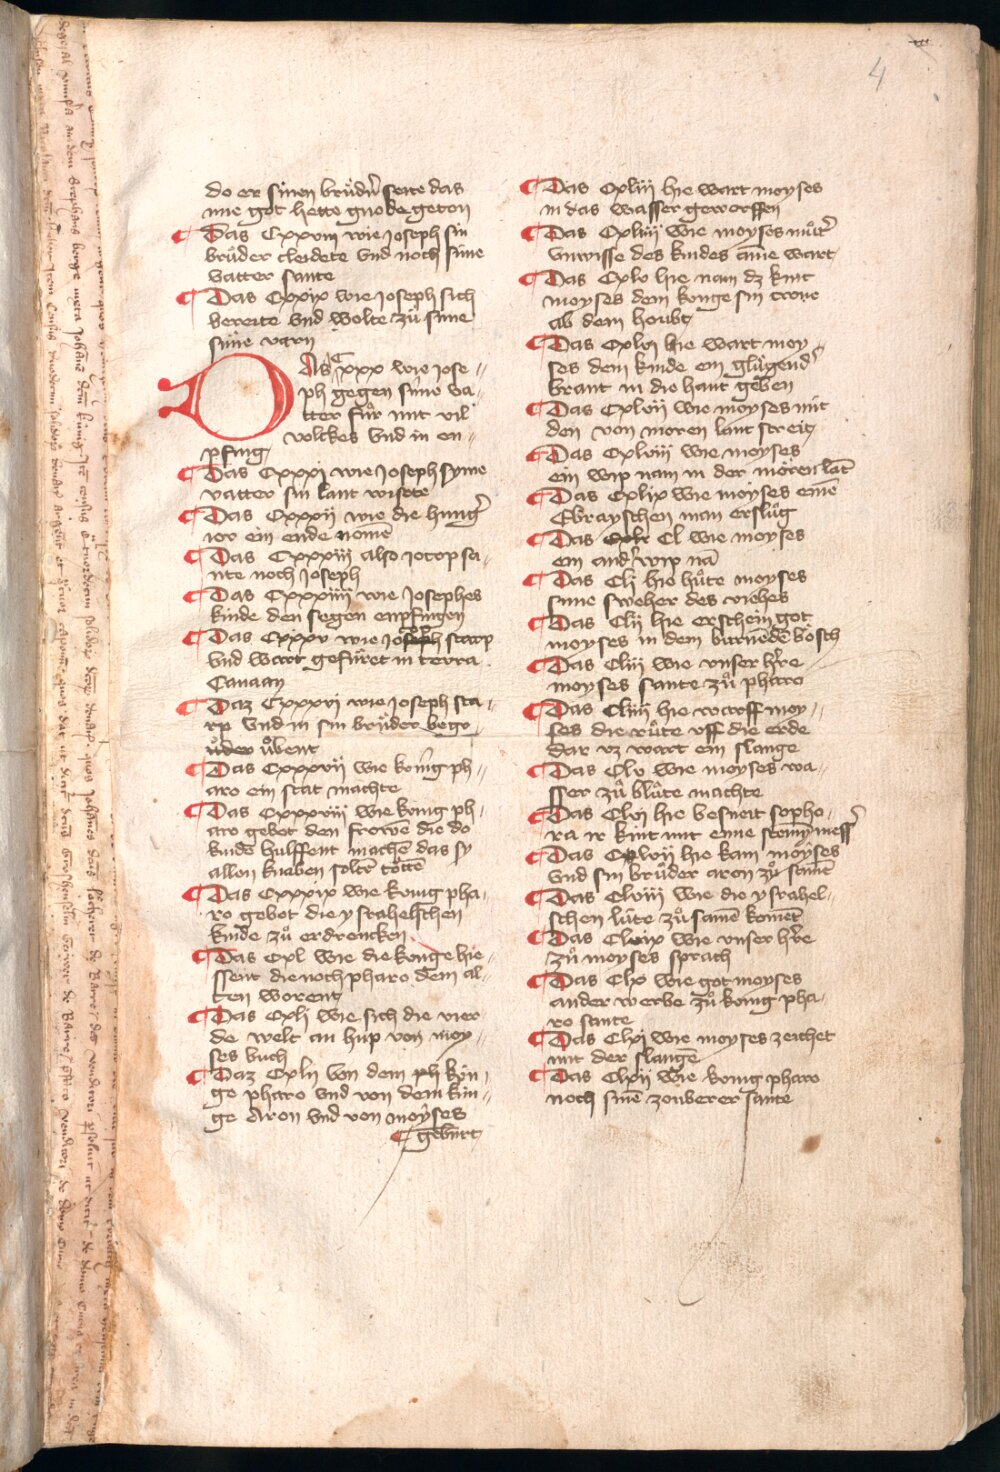 4
do er sinen brüdn̄ seite das
ime got hette gnode geton
Das Cxxviii wie joseph sin
brüder cleidete vnd noch sime
vatter sante
Das Cxxix wie joseph sich
bereite vnd wolte zů sime
sime varn
DAs Cxxx wie jose//
ph gegen sime va/
tter für mit vil
volckes vnd in en//
pfing
Das Cxxxi wie joseph syme
vatter sin lant wisete
Das Cxxxii wie die hung̉
ior ein ende nomē
Das Cxxxiii also jocop sa/
nte noch joseph
Das Cxxxiiii wie josephes
kinde den segen enpfingen
Das Cxxxv wie jocop starp
vnd wart gefüret in terra
Canaan
Daz Cxxxvi wie joseph sta/
rp vnd in sin brüder begr/
übent
Das Cxxxvii wie könig ph//
aro ein stat machte
Das Cxxxviii wie könig ph/
aro gebot den frowē die do
kinde hulffent machē das sy
allen knaben soltē tötē
Das Cxxxix wie konig pha/
ro gebot die ysrahelschen
kinde zů erdrencken
Das Cxl wie die konge hie/
ssent die noch pharo dem al/
ten worent
Das Cxli wie sich die vier
de welt an hůp von moy/
ses buch
Daz Cxlii von dem kön/
ge pharo vnd von dem kün/
ge Aron vnd von moyses
gebürt
Das Cxliii hie wart moyses
in das wasser geworffen
Das Cxliiii wie moyses můt̉
vnwisse des kindes am̄e wart
Das Cxlv hie nam dz kint
moyses dem konge sin crone
ab dem houbt
Das Cxlvi hie wart moy/
ses dem kinde ein glügend̉
brant in die hant geben
Das Cxlvii wie moyses mit
den von moren lant streit
Das Cxlviii wie moyses
ein wip nam in der mören lāt
Das Cxlix wie moyses einē
Ebrayschen man erslůg
Das Cl wie moyses
ein and̉ wip nā
Das Cli hie hůte moyses
sime sweher des viehes
Das Clii hie erschein got
moyses in dem burnedē bosch
Das Cliii wie vnser h̉re
moyses sante zů pharo
Das Cliiii hie warff moy//
ses die růte vff die erde
dar vz wart ein slange
Das Clv wie moyses wa/
sser zů blůte machte
Das Clvi hie besneit sepho/
ra ir kint mit eime steiny mess̉
Das Clvii hie kam moyses
vnd sin brüder aron zů samē
Das Clviii wie die ysrahel/
schen lüte zů samē komēt
Das Clix wie vnser h̉re
zů moyses sprach
Das Clx wie got moyses
ander werbe zů konig pha/
ro sante
Das Clxi wie moyses zeichet
mit der slange
Das Clxii wie konig pharo
noch sinē zouberer sante